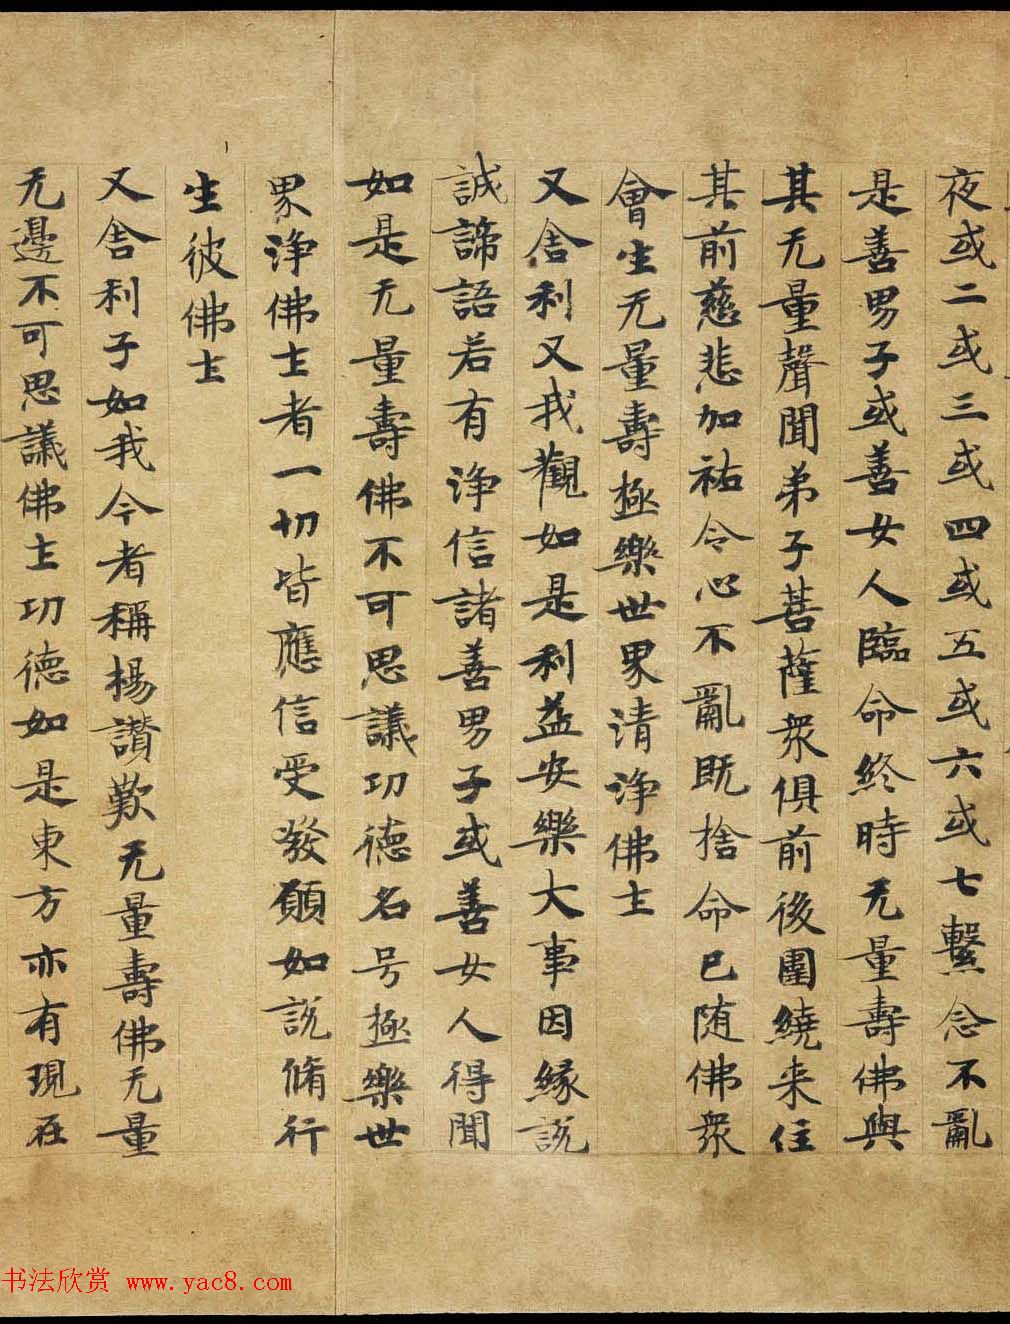 夜或二或三或四或五或六或七繫念不亂
是善男子或善女人臨命終時无量壽佛與
其无量聲聞弟子菩薩衆俱前後圍繞来住
其前慈悲加祐令心不亂既捨命已随佛衆
會生无量壽極樂世界清淨佛土
又舍利又我觀如是利益安樂大事因緣説
誠諦語若有淨信諸善男子或善女人得聞
如是无量壽佛不可思議功德名号極樂世
界淨佛土者一切皆應信受發願如説脩行
生彼佛土
又舍利子如我今者稱揚讃歎无量壽佛无量
无邊不可思議佛土功德如是東方亦有現在
书法欣赏 www.yac8.com